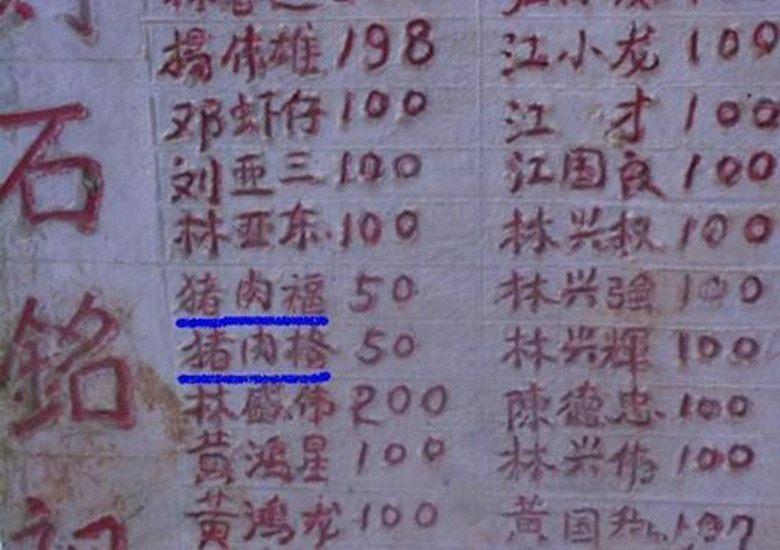 石
銘
揚伟雄 198 江小龙 100
邓虾仔 100 江 才 100
刘亚三 100 江国良 100
林亚东 100 林兴权 100
猪肉福 50 林兴強 100
猪肉橋 50 林兴輝 100
林盛伟 200 陳德忠 100
黄鸿星 100 林兴伟 100
黄鸿龙 100 黄国 197